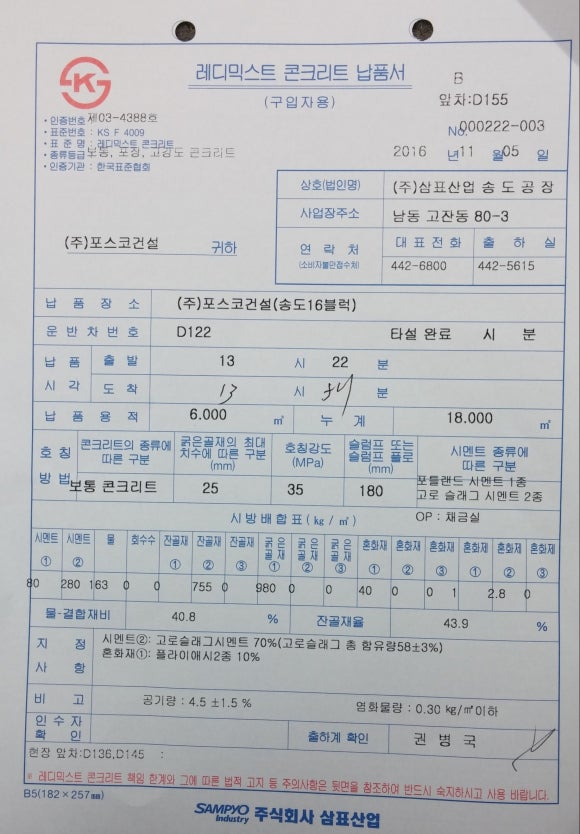 레디믹스트 콘크리트 납품서
(구입자용)
B
앞차:D155
No. 000222-003
2016 년 11 월 05 일
· 인증번호 : 제03-4388호
· 표준번호 : KS F 4009
· 표 준 명 : 레디믹스트 콘크리트
· 종류등급 : 보통, 포장, 고강도 콘크리트
· 인증기관 : 한국표준협회
상호(법인명) (주)삼표산업 송도공장
사업장주소 남동 고잔동 80-3
연 락 처 대 표 전 화 출 하 실
(소비자불만접수처) 442-6800 442-5615
(주)포스코건설 귀하
납 품 장 소 (주)포스코건설(송도16블럭)
운 반 차 번 호 D122 타설 완료 시 분
납 품 시 각 출 발 13 시 22 분
도 착 13 시 분
납 품 용 적 6.000 ㎥ 누 계 18.000 ㎥
호칭 방법 콘크리트의 종류에 따른 구분 굵은골재의 최대 치수에 따른 구분 (mm) 호칭강도 (MPa) 슬럼프 또는 슬럼프 플로 (mm) 시멘트 종류에 따른 구분
보통 콘크리트 25 35 180 포틀랜드 시멘트 1종
고로 슬래그 시멘트 2종
시 방 배 합 표 ( kg / ㎥ ) OP : 채금실
시멘트① 시멘트② 물 회수수 잔골재① 잔골재② 잔골재③ 굵은골재① 굵은골재② 굵은골재③ 혼화재① 혼화재② 혼화재③ 혼화제① 혼화제② 혼화제③
80 280 163 0 0 755 0 980 0 0 40 0 0 1 2.8 0
물-결합재비 40.8 % 잔골재율 43.9 %
지 정 사 항 시멘트②: 고로슬래그시멘트 70%(고로슬래그 총 함유량58±3%)
혼화재①: 플라이애시2종 10%
비 고 공기량 : 4.5 ±1.5 % 염화물량 : 0.30 kg/㎥이하
인 수 자 확 인 출하계 확인 권 병 국
현장 앞차:D136,D145 :
※ 레디믹스트 콘크리트 책임 한계와 그에 따른 법적 고지 등 주의사항은 뒷면을 참조하여 반드시 숙지하시고 사용 바랍니다.
B5(182×257㎜)
SAMPYO Industry 주식회사 삼표산업